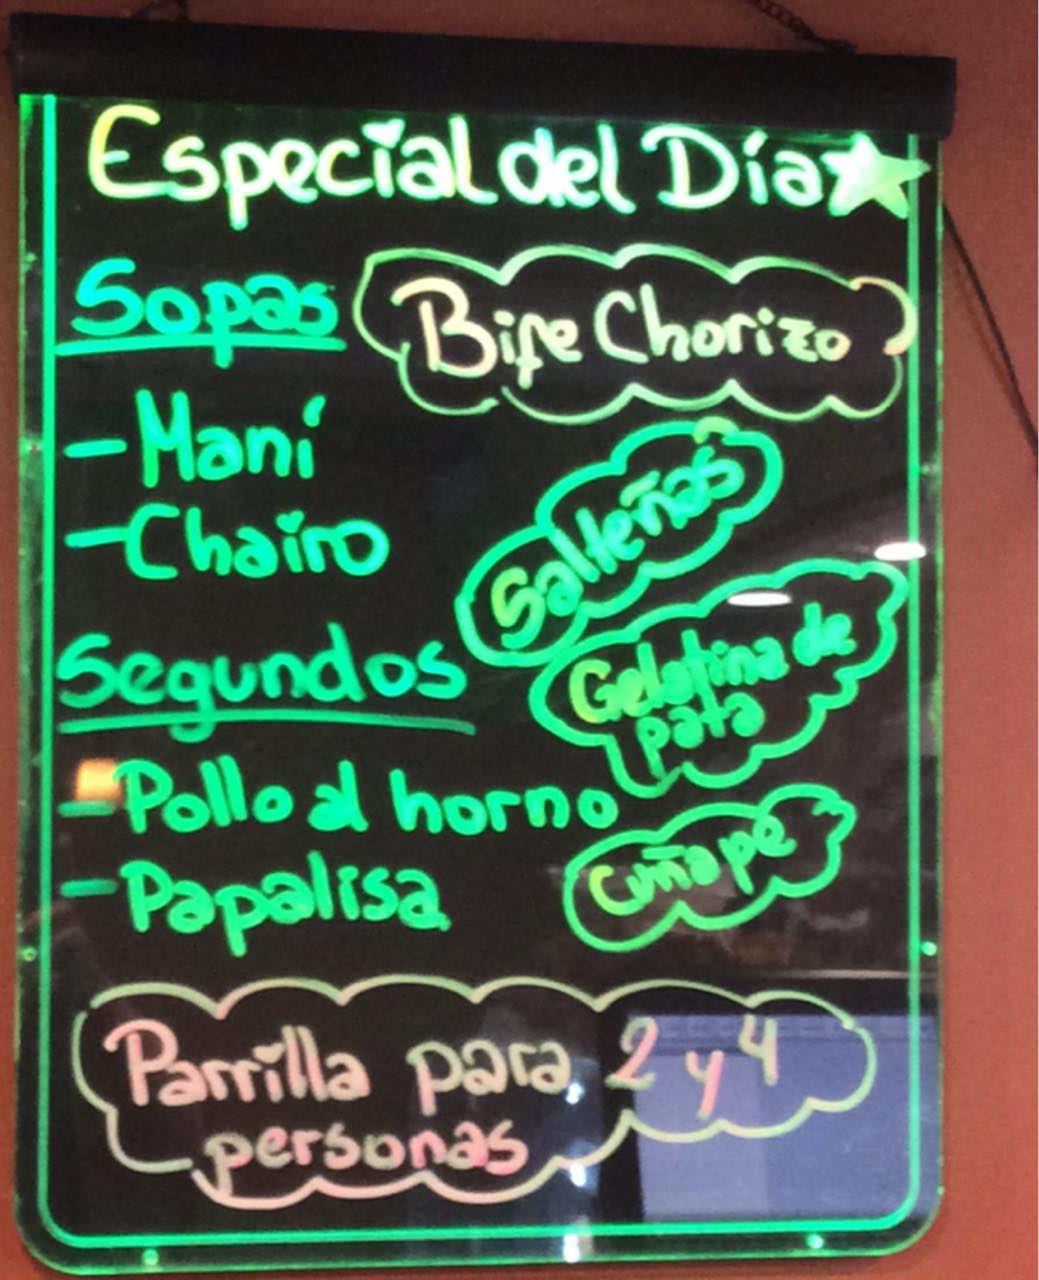 Especial del Día
Sopas
Bife Chorizo
- Maní
- Chairo
Salteñas
Segundos
Gelatina de
pata
- Pollo al horno
- Papalisa
Cuñape
Parrilla para 2 y 4
personas